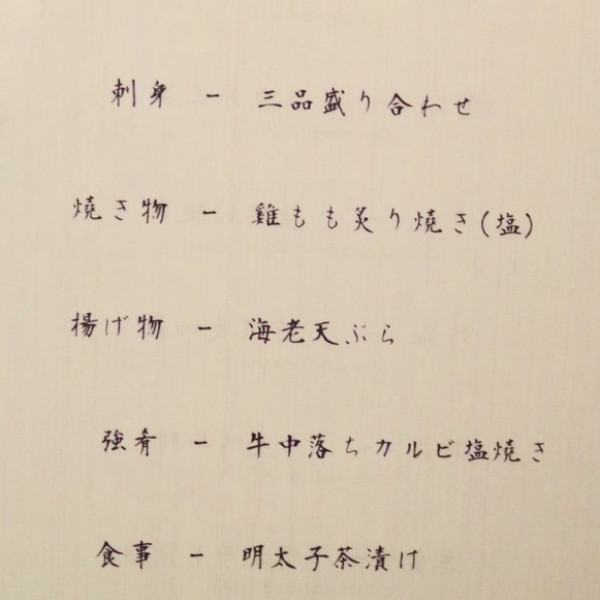 刺身 － 三品盛り合わせ
焼き物 － 雞もも炙り焼き(塩)
揚げ物 － 海老天ぷら
強肴 － 牛中落ちカルビ塩焼き
食事 － 明太子茶漬け